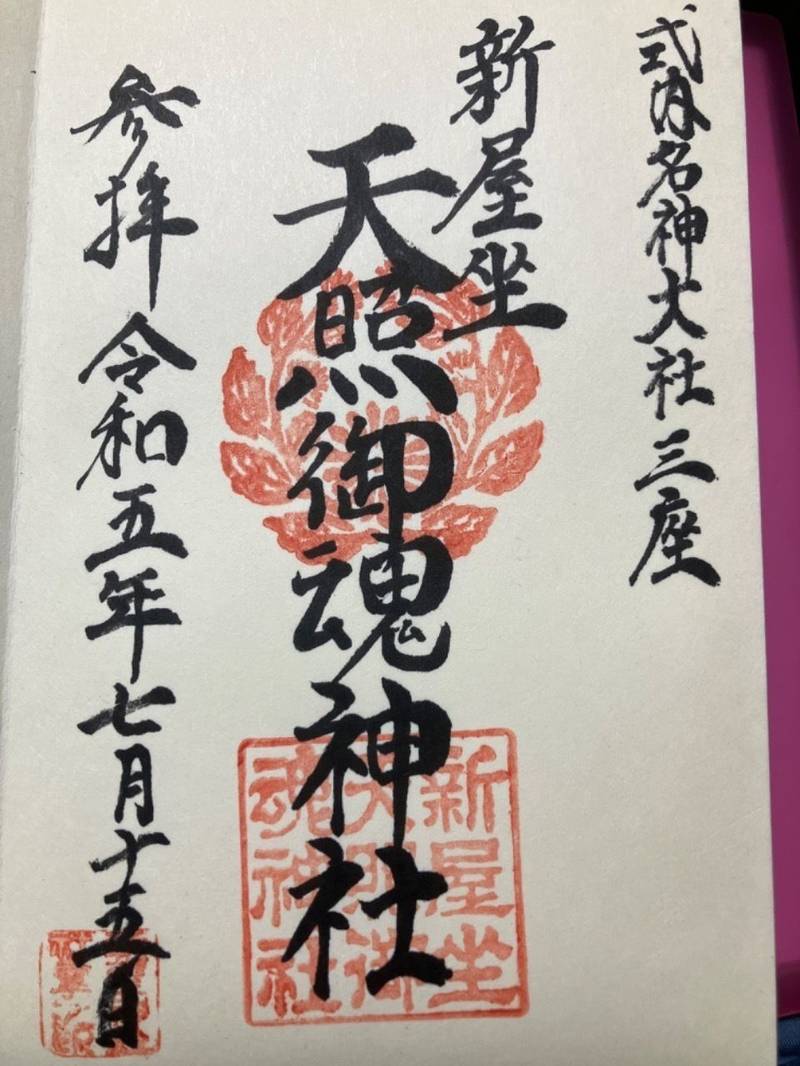 式内名神大社三座
新屋坐
天照御魂神社
参拝 令和五年七月十五日
新屋坐
天照御
魂神社